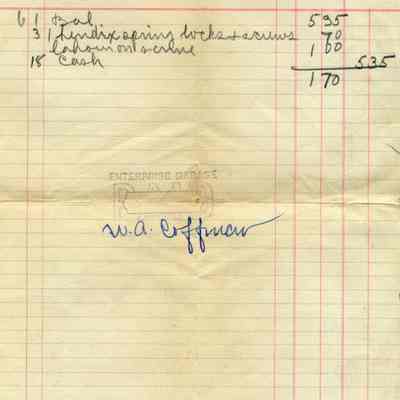 6 1 Bal 5 95
3 1 Bendix spring locks + screws 70
Labour on same 1 00
18 Cash 5 35
1 70
ENTERPRISE GARAGE
PAID
W. A. Coffman